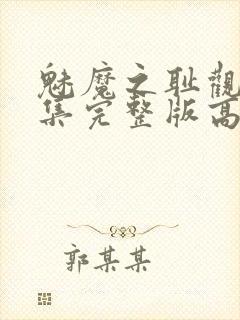 魅魔之耻觀
集完整版高
郭某某